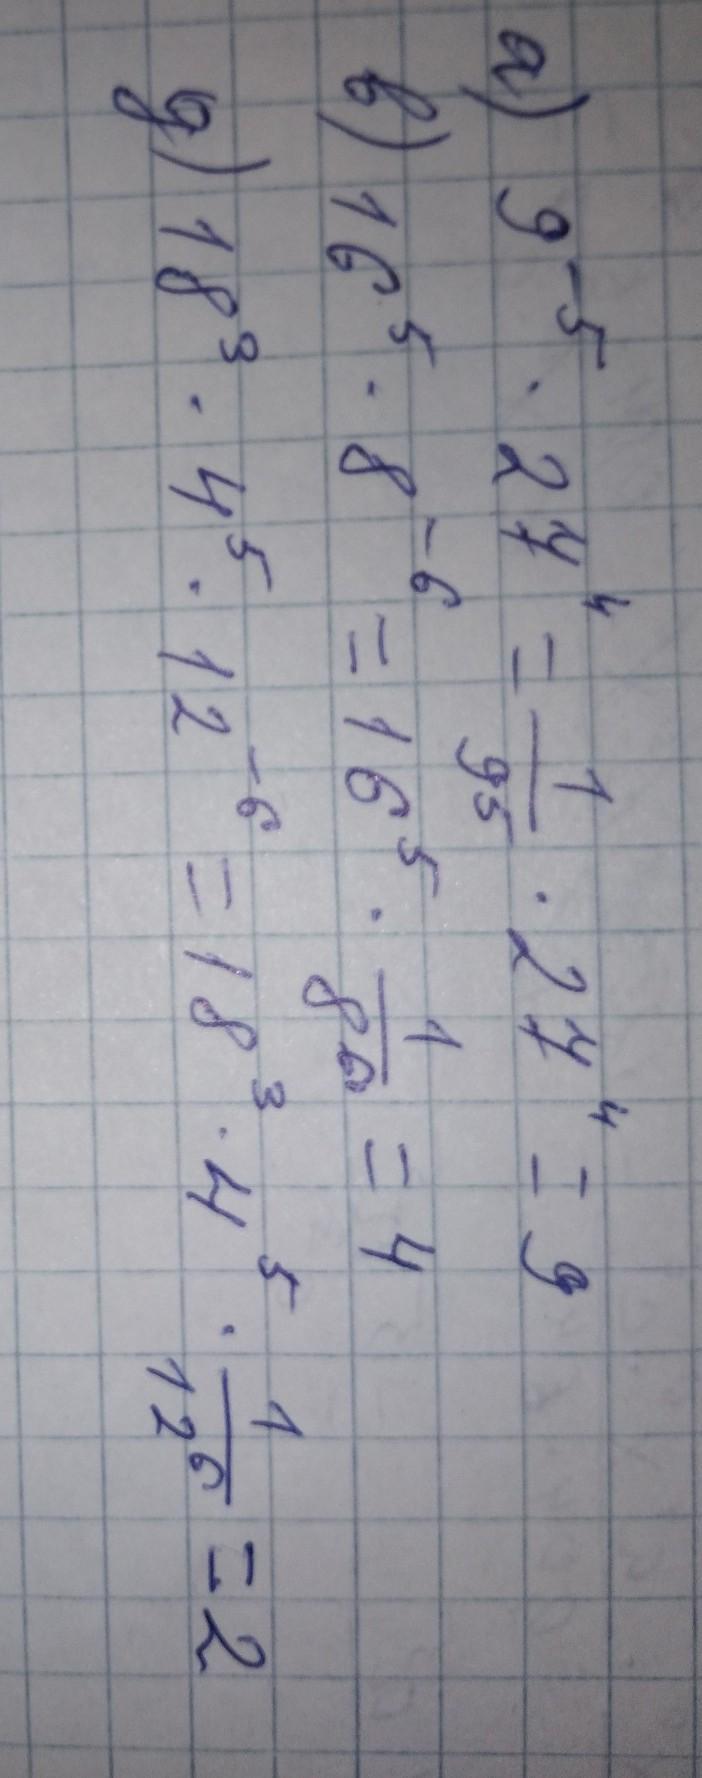 а) 9⁻⁵ · 27⁴ = 1/9⁵ · 27⁴ = 9
в) 16⁵ · 8⁻⁶ = 16⁵ · 1/8⁶ = 4
д) 18³ · 4⁵ · 12⁻⁶ = 18³ · 4⁵ · 1/12⁶ = 2